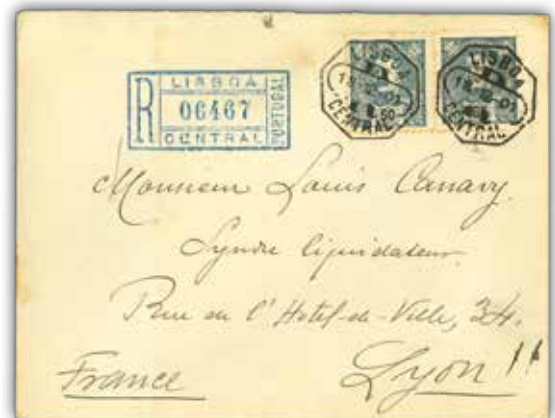 LISBOA
R 06467 PORTUGAL
CENTRAL
LISBOA
CENTRAL
LISBOA
CENTRAL
Monsieur Louis Canavy.
Syndic liquidateur.
Rue de l'Hotel-de-Ville, 34.
France
Lyon